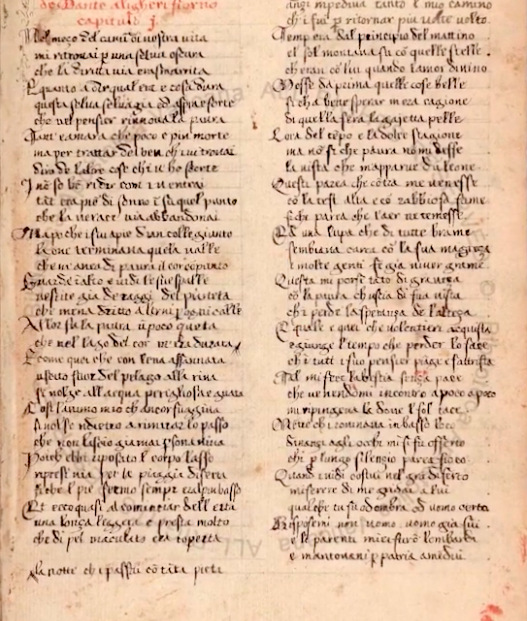 de Dante Alighieri fiorno
capitulo j.
Nel meço del camī di nostra uita
mi ritrouai p una selua oscura
che la diritta uia era smarrita
E quanto a dir qual era e cosa dura
questa selua seluagia ed aspra e forte
che nel pensier rinnoua la paura
Tant e amara che poco e piu morte
ma per trattar del ben ch i ui trouai
diro de laltre cose ch i u ho scorte
I nō so bē ridir com i u entrai
tāt era pien di sonno su quel punto
che la uerace uia abbandonai
Ma po che fui a pie dun colle giunto
la oue terminaua quela ualle
che m auea di paura il cor compunto
Guardai ī alto e uidi le sue spalle
uestite gia de raggi del pianeta
che mena dritto altrui p ogni calle
Allor fu la paura ū poco queta
che nel lago del cor m era durata
E come quei che con lena affannata
uscito fuor del pelago alla riua
si uolge all acqua perigliosa e guata
Cosi lanimo mio ch ancor fuggiua
si uolse ndietro a rimirar lo passo
che non lascio giamai psona uiua
Poich ebbi riposato il corpo lasso
ripresi uia per la piaggia diserta
si che l pie fermo sempre era l piu basso
Et ecco quasi al cominciar dell erta
una lonça leggera e presta molto
che di pel maculato era coperta
la notte ch i passai cō tāta pieta
anzi impediua tanto il mio camino
ch i fui p ritornar piu uolte uolto
Temp era dal principio del mattino
el sol montaua su cō quelle stelle
ch eran cō lui quando lamor diuino
Mosse da prima quelle cose belle
si ch a bene sperar m era cagione
di quella fera la gaietta pelle
Lora del tēpo e la dolce stagione
ma nō si che paura nō mi desse
la uista che m apparue dū leone
Questi parea che cōtra me uenesse
cō la test alta e cō rabbiosa fame
si che parea che l aer ne temesse
Ed una lupa che di tutte brame
sembiaua carca cō la sua magrezza
e molte genti fe gia uiuer grame
Questa mi porse tāto di grauezza
cō la paura ch uscia di sua uista
ch i perde la speranza de l altezza
E quale e quei che uolentieri acquista
e giunge l tempo che perder lo face
ch i tutti i suo pensier piage e s attrista
Tal mi fece la bestia senza pace
che uenendomi incontro a poco a poco
mi ripingeua la doue l sol tace
Mentre ch i rouinaua in basso loco
dinanzi agli occhi mi si fu offerto
chi p lungo silenzio parea fioco
Quand i uidi costui nel grā diserto
miserere di me gridai a lui
qual che tu sii od ombra od uomo certo
Risposemi non uomo uomo gia fui
e li parenti miei furō lombardi
e mantouani p patria amedui